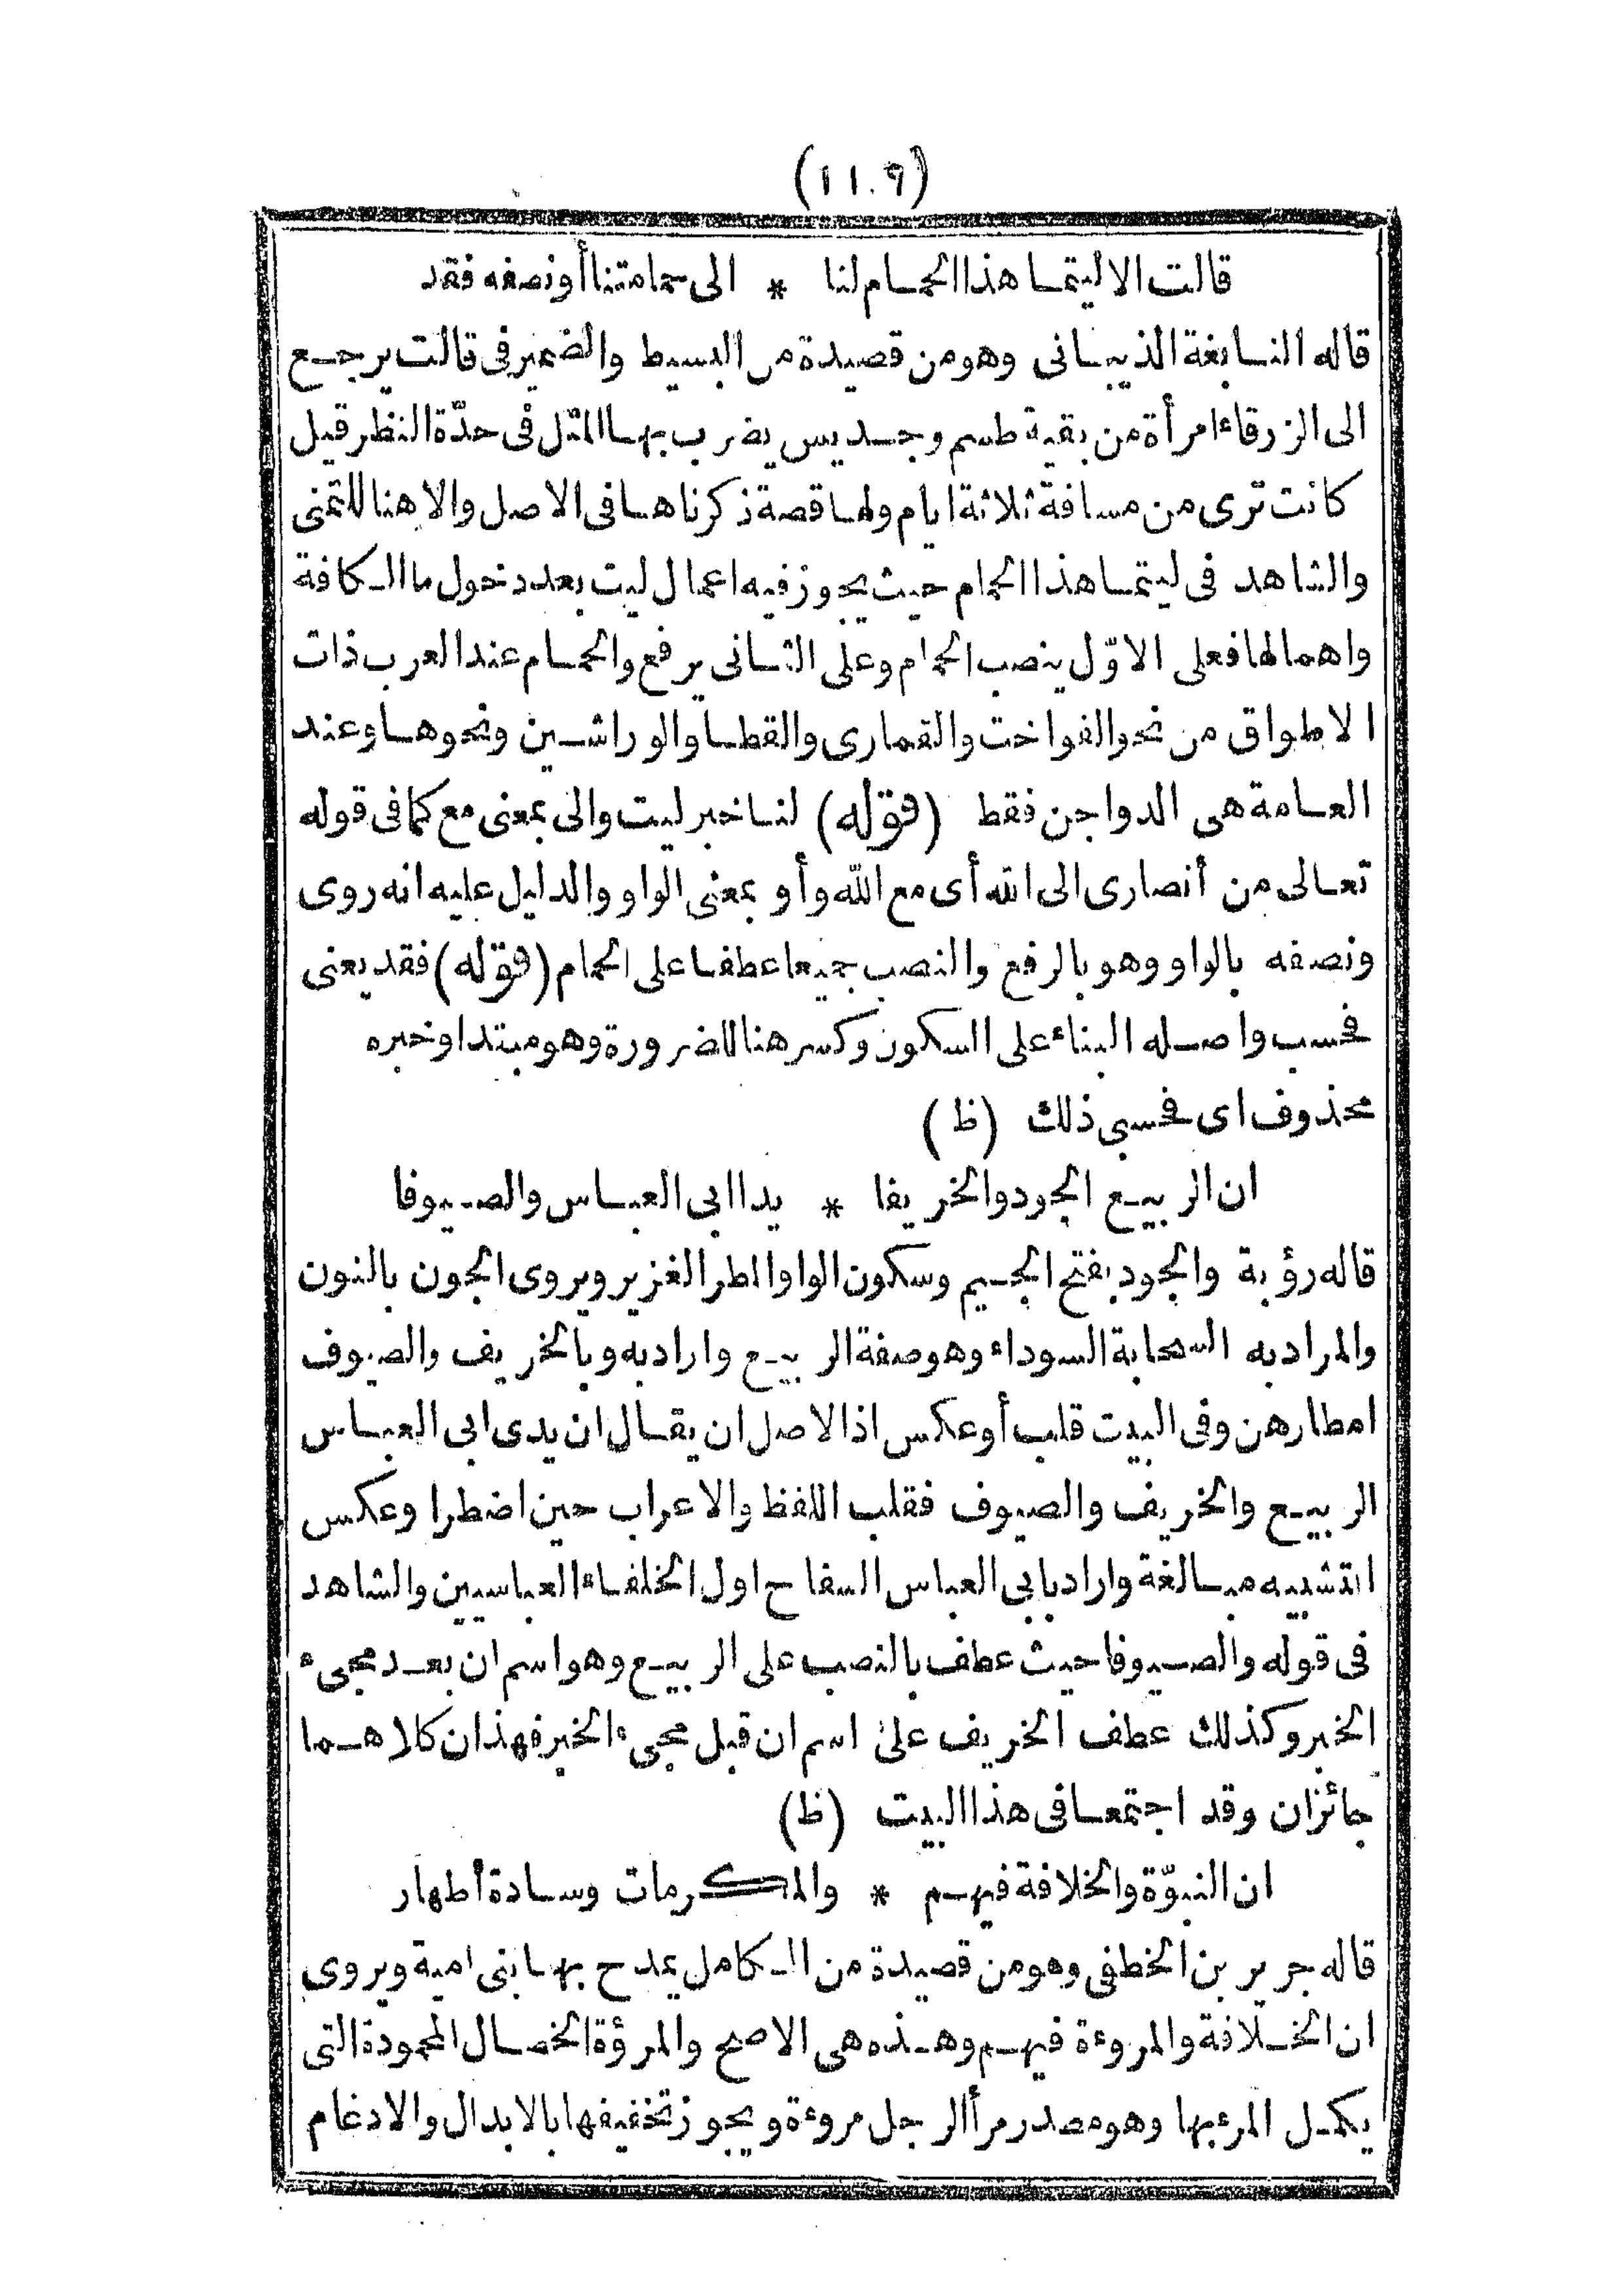 (١١٠٩)
قالت الا ليتما هذا الحمام لنا * الى حمامتنا أو نصفه فقد
قاله النابغة الذبيانى وهو من قصيدة من البسيط والضمير فى قالت يرجع
الى الزرقاء امرأة من بقية طسم وجديس يضرب بها المثل فى حدّة النظر قيل
كانت ترى من مسافة ثلاثة ايام ولها قصة ذكرناها فى الاصل والا هنا للتمنى
والشاهد فى ليتما هذا الحمام حيث يجوز فيه اعمال ليت بعد دخول ما الكافة
واهمالها فعلى الاوّل ينصب الحمام وعلى الثانى يرفع والحمام عند العرب ذات
الاطواق من نحو الفواخت والقمارى والقطا والوراشين ونحوها وعند
العامة هى الدواجن فقط (قوله) لنا خبر ليت والى بمعنى مع كما فى قوله
تعالى من أنصارى الى الله أى مع الله وأو بمعنى الواو والدليل عليه انه روى
ونصفه بالواو وهو بالرفع والنصب جميعا عطفا على الحمام (قوله) فقد يعنى
فحسب واصله البناء على السكون وكسر هنا للضرورة وهو مبتدا وخبره
محذوف اى فحسبى ذلك (ظ)
ان الربيع الجود والخريفا * يدا ابى العباس والصيوفا
قاله رؤبة والجود بفتح الجيم وسكون الواو المطر الغزير ويروى الجون بالنون
والمراد به السحابة السوداء وهو صفة الربيع واراد به وبالخريف والصيوف
امطارهن وفى البيت قلب أو عكس اذ الاصل ان يقال ان يدى ابى العباس
الربيع والخريف والصيوف فقلب اللفظ والاعراب حين اضطرا وعكس
التشبيه مبالغة واراد بابى العباس السفاح اول الخلفاء العباسيين والشاهد
فى قوله والصيوفا حيث عطف بالنصب على الربيع وهو اسم ان بعد مجىء
الخبر وكذلك عطف الخريف على اسم ان قبل مجىء الخبر فهذان كلاهما
جائزان وقد اجتمعا فى هذا البيت (ظ)
ان النبوّة والخلافة فيهم * والمكرمات وسادة أطهار
قاله جرير بن الخطفى وهو من قصيدة من الكامل يمدح بها بنى امية ويروى
ان الخلافة والمروءة فيهم وهذه هى الاصح والمرؤة الخصال المحمودة التى
يكمل المرء بها وهو مصدر مرأ الرجل مروءة ويجوز تخفيفها بالابدال والادغام